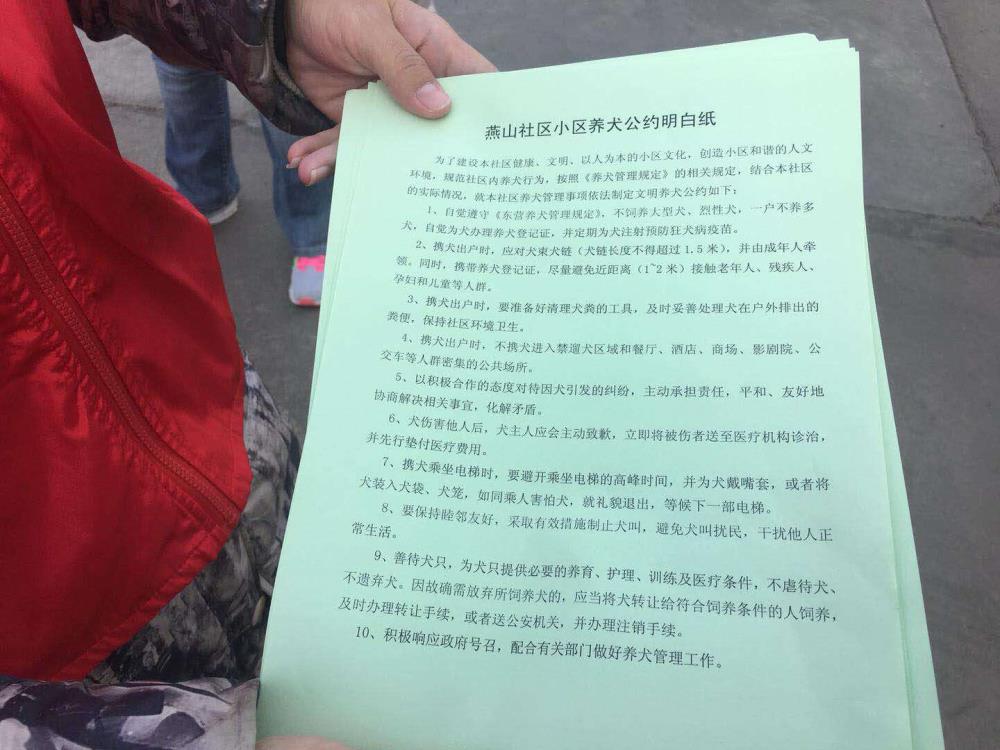 燕山社区小区养犬公约明白纸
为了建设本社区健康、文明、以人为本的小区文化，创造小区和谐的人文
环境，规范社区内养犬行为，按照《养犬管理规定》的相关规定，结合本社区
的实际情况，就本社区养犬管理事项依法制定文明养犬公约如下：
1、自觉遵守《东营养犬管理规定》，不饲养大型犬、烈性犬，一户不养多
犬，自觉为犬办理养犬登记证，并定期为犬注射预防狂犬病疫苗。
2、携犬出户时，应对犬束犬链（犬链长度不得超过1.5米），并由成年人牵
领。同时，携带养犬登记证，尽量避免近距离（1~2米）接触老年人、残疾人、
孕妇和儿童等人群。
3、携犬出户时，要准备好清理犬粪的工具，及时妥善处理犬在户外排出的
粪便，保持社区环境卫生。
4、携犬出户时，不携犬进入禁遛犬区域和餐厅、酒店、商场、影剧院、公
交车等人群密集的公共场所。
5、以积极合作的态度对待因犬引发的纠纷，主动承担责任，平和、友好地
协商解决相关事宜，化解矛盾。
6、犬伤害他人后，犬主人应会主动致歉，立即将被伤者送至医疗机构诊治，
并先行垫付医疗费用。
7、携犬乘坐电梯时，要避开乘坐电梯的高峰时间，并为犬戴嘴套，或者将
犬装入犬袋、犬笼，如同乘人害怕犬，就礼貌退出，等候下一部电梯。
8、要保持睦邻友好，采取有效措施制止犬叫，避免犬叫扰民，干扰他人正
常生活。
9、善待犬只，为犬只提供必要的养育、护理、训练及医疗条件，不虐待犬、
不遗弃犬。因故确需放弃所饲养犬的，应当将犬转让给符合饲养条件的人饲养，
及时办理转让手续，或者送公安机关，并办理注销手续。
10、积极响应政府号召，配合有关部门做好养犬管理工作。